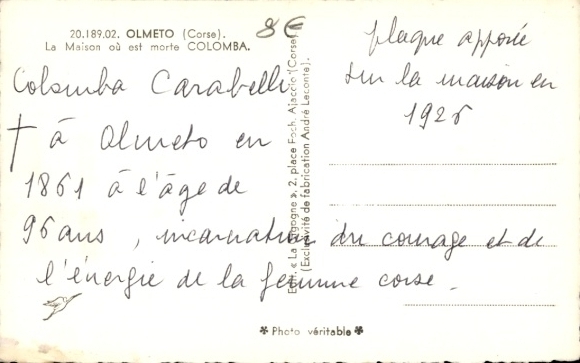 20.189.02. OLMETO (Corse).
La Maison où est morte COLOMBA.
8€
plaque apposée
sur la maison en
1926
Colomba Carabelli
† à Olmeto en
1861 à l'âge de
96 ans, incarnation du courage et de
l'énergie de la femme corse.
Edit. « La Cigogne », 2, place Foch, Ajaccio (Corse)
(Exclusivité de fabrication André Leconte).
✱ Photo véritable ✱